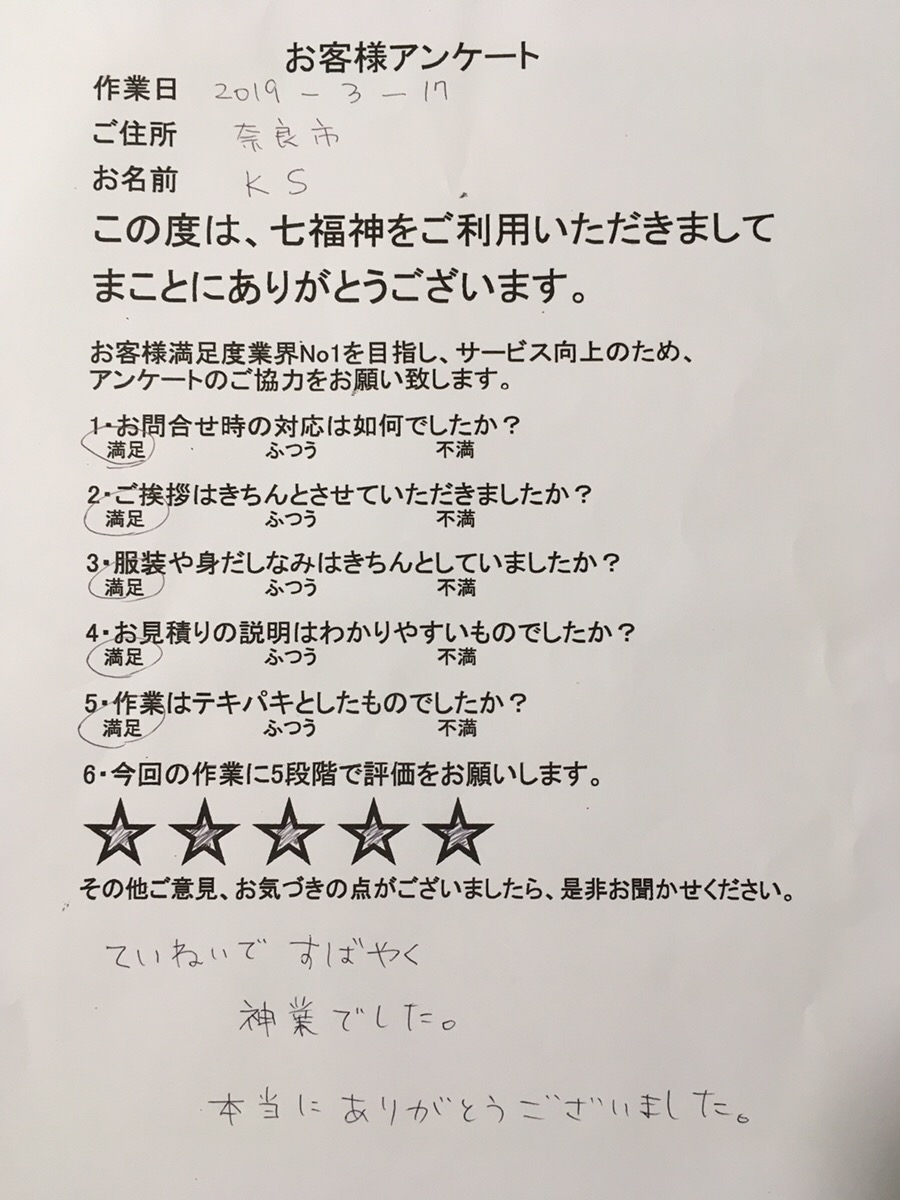 お客様アンケート
作業日 2019-3-17
ご住所 奈良市
お名前 KS
この度は、七福神をご利用いただきまして
まことにありがとうございます。
お客様満足度業界No1を目指し、サービス向上のため、
アンケートのご協力をお願い致します。
1・お問合せ時の対応は如何でしたか?
満足 ふつう 不満
2・ご挨拶はきちんとさせていただきましたか?
満足 ふつう 不満
3・服装や身だしなみはきちんとしていましたか?
満足 ふつう 不満
4・お見積りの説明はわかりやすいものでしたか?
満足 ふつう 不満
5・作業はテキパキとしたものでしたか?
満足 ふつう 不満
6・今回の作業に5段階で評価をお願いします。
その他ご意見、お気づきの点がございましたら、是非お聞かせください。
ていねいで すばやく
神業でした。
本当にありがとうございました。